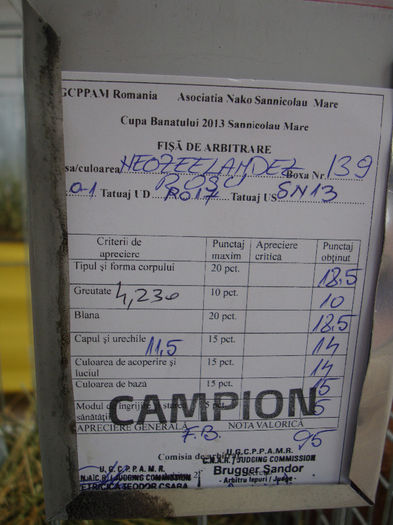 GCPPAM Romania Asociatia Nako Sannicolau Mare
Cupa Banatului 2013 Sannicolau Mare
FIŞĂ DE ARBITRARE
sa/culoarea NEOZEELANDEZ Boxa Nr. 139
ROSU
0-1 Tatuaj UD RO17 Tatuaj US SN13
Criterii de apreciere Punctaj maxim Apreciere critica Punctaj obţinut
Tipul şi forma corpului 20 pct. 18,5
Greutate 4,230 10 pct. 10
Blana 20 pct. 18,5
Capul si urechile 11,5 15 pct. 14
Culoarea de acoperire şi luciul 15 pct. 14
Culoarea de baza 15 pct. 15
Modul de îngrijire stare sănătăţii 5 pct. 5
CAMPION
APRECIERE GENERALĂ F.B. NOTA VALORICĂ 95
Comisia de arbitri
U.G.C.P.P.A.M.R. U.G.C.P.P.A.M.R.
JUDGING COMMISSION C.N.A.R. / JUDGING COMMISSION
TEODOR CSABA Brugger Sandor
- Arbitru Iepuri / Judge -